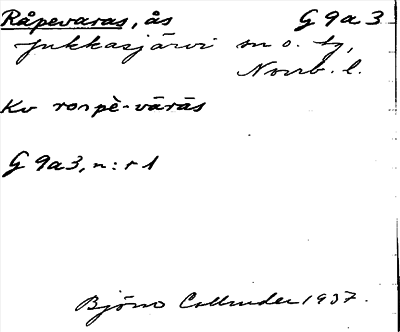 Råpevaras, ås G 9a 3
Jukkasjärvi sn o. tg,
Norrb. l.
Kv rospè-vārās
G 9a3, n:r 1
Björn Collinder 1937.